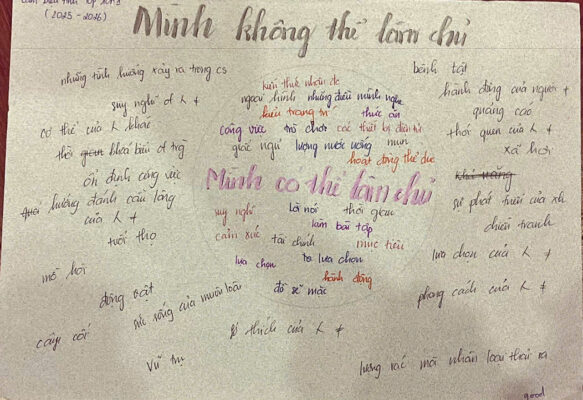 (2025-2026)
Mình không thể làm chủ
những tình huống xảy ra trong cs
bệnh tật
kiến thức nhân de
suy nghĩ of L +
ngoại hình những điều mình nghe
hành động của người +
kiểu trang trí thức ăn
quảng cáo
cơ thể của L khác
công việc trò chơi các thiết bị điện tử
thói quen của L +
thời gian khai biểu of trg
giấc ngủ lượng nước uống mùi
xã hội
hoạt động thể dục
ổn định công việc
Mình có thể làm chủ
khả năng
hướng đánh cầu lông
của L +
suy nghĩ lời nói thời gian
sự phát triển của xh
làm bài tập
chiến tranh
tuổi thọ
cảm xúc tài chính mục tiêu
lựa chọn tơ lựa chọn
lựa chọn của L +
mồ hôi
hành động
động vật
đồ sẽ mặc
phong cách của L +
sức sống của muôn loài
cây cối
sở thích của L +
Vũ trụ
lượng rác mà nhân loại thải ra
good